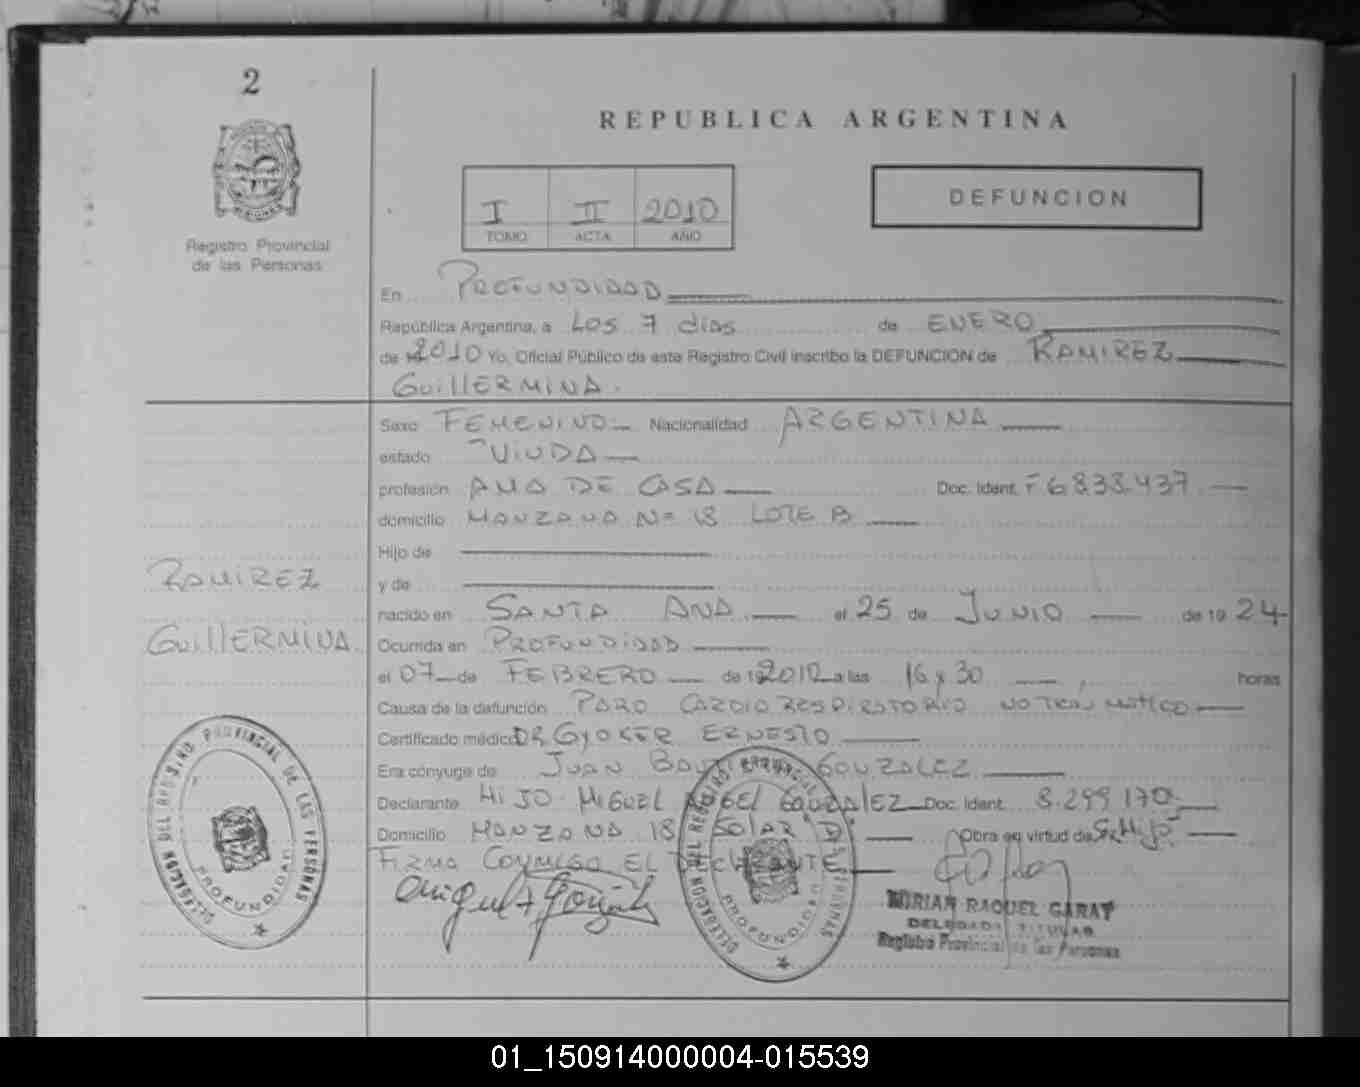 2
REPUBLICA ARGENTINA
I II 2010
TOMO ACTA AÑO
DEFUNCION
Registro Provincial
de las Personas
En PROFUNDIDAD
República Argentina, a LOS 7 dias de ENERO
de 2010 Yo, Oficial Público de este Registro Civil inscribo la DEFUNCION de RAMIREZ
GUILLERMINA.
Sexo FEMENINO Nacionalidad ARGENTINA
estado VIUDA
profesión AMA DE CASA Doc. Ident. F 6.838.437
domicilio MANZANA Nº 18 LOTE B
Hijo de
y de
RAMIREZ
nacido en SANTA ANA el 25 de JUNIO de 19 24
GUILLERMINA
Ocurrida en PROFUNDIDAD
el 07 de FEBRERO de 2010 a las 16 y 30 horas
Causa de la defunción PARO CARDIO RESPIRATORIO NO TRAUMATICO
Certificado médico DR GYOKER ERNESTO
Era cónyuge de JUAN GONZALEZ
Declarante HIJO MIGUEL ANGEL GONZALEZ Doc. Ident. 8.299.170
Domicilio MANZANA 18 SOLAR "D" Obra en virtud de Sr. Hijo
FIRMA CONMIGO EL DECLARANTE
Miguel A González
MIRIAN RAQUEL GARAY
DELEGADA TITULAR
Registro Provincial de las Personas
DELEGACION DEL REGISTRO PROVINCIAL DE LAS PERSONAS
PROFUNDIDAD
DELEGACION DEL REGISTRO PROVINCIAL DE LAS PERSONAS
PROFUNDIDAD
01_150914000004-015539